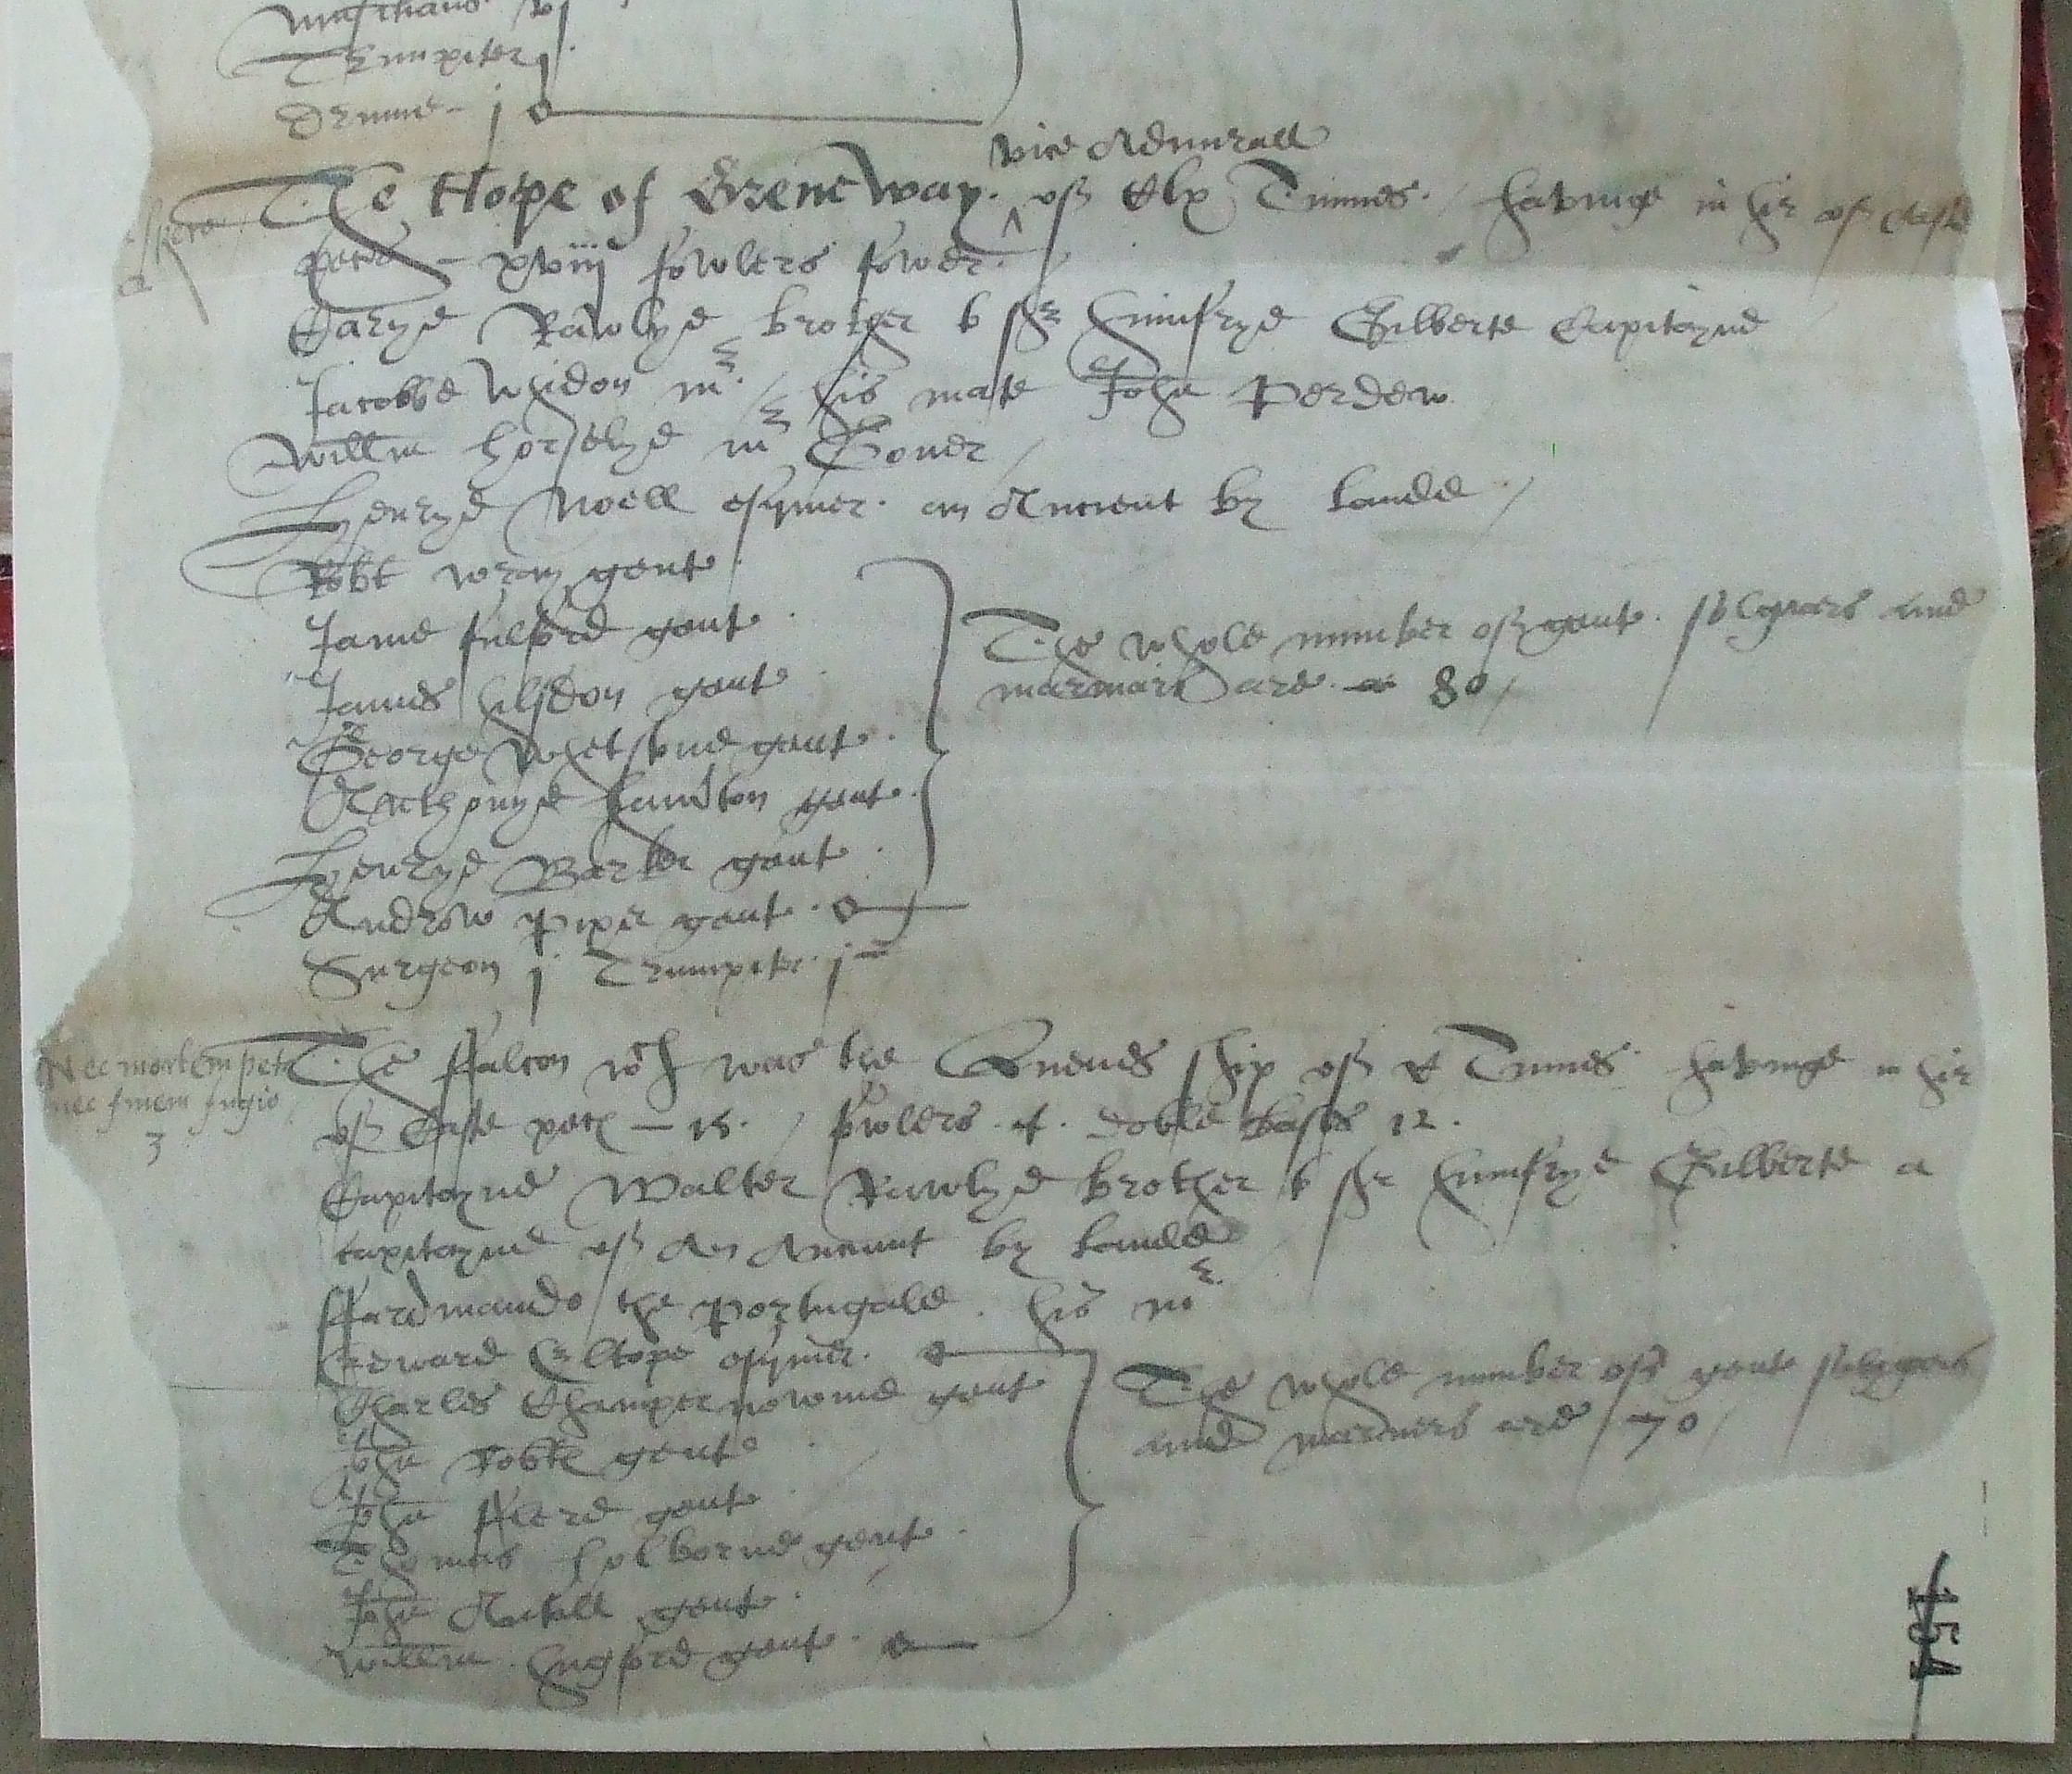 Musitians vj
Trumpiter j
Drume – j
vice Admirall
The Hope of Grene Way. ^ of Clx Tunnes. / havinge in hir of Caste
pecs – xviij fowlers fower. /
Carye Rawlye brother to Sr Humfrye Gilberte Capitayne
Jacobbe Whidon mr. / his mate John Perdew
Willm horselye mr Goner /
Henrye Noell esquier. an Ancient by Lande. /
Robt Wray gent
Jame fulford gent.
James hilsdon gent
George Whetstone gent.
Anthonye Hamton gent.
Henrye Barker gent.
Andrew Piper gent.
Surgeon j Trumpiter j
The whole number of gent. solgiers and
mariners are 80 /
Nec mortem peto
nec finem fugio
3
The ffalcon wch was the Quenes ship of C Tunnes. havinge in hir
of Caste pecs – 15. / fowlers .4. doble bases 12.
Capitayne Walter Rawlye brother to Sr Humfrye Gilberte a
capitayne of An Ancient by Lande
fferdinando the Portugale. his mr
Edward Eltope esquier.
Charles Champernowne gent
John Robts gent
John fflerd gent
Thomas holborne gent.
John Antell gent.
Willm Hugford gent.
The whole number of gent solgiers
and mariners are 70 /
154